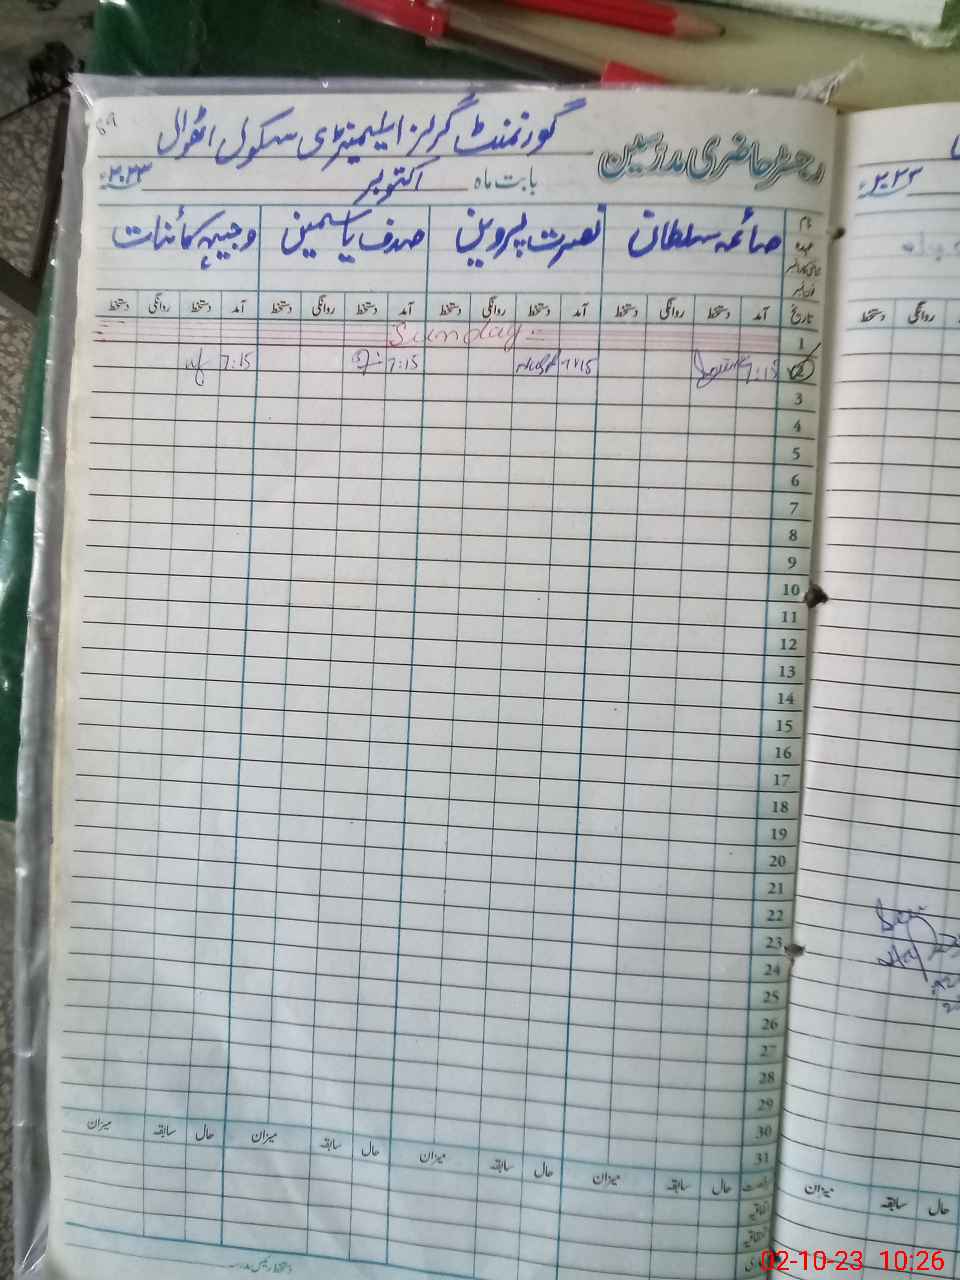 89
گورنمنٹ گرلز ایلیمنٹری سکول اٹھوال
رجسٹر حاضری مدرسین
بابت ماہ اکتوبر ۲۰۲۳ء
نام
عہدہ
صائمہ سلطانہ نصرت پروین صدف یاسمین وجیہہ کائنات
تاریخ آمد دستخط روانگی دستخط آمد دستخط روانگی دستخط آمد دستخط روانگی دستخط آمد دستخط روانگی دستخط
1 Sunday
2 7:15 7:15 7:15 7:15
3
4
5
6
7
8
9
10
11
12
13
14
15
16
17
18
19
20
21
22
23
24
25
26
27
28
29
30
31
حال سابقہ میزان حال سابقہ میزان حال سابقہ میزان حال سابقہ میزان
اتفاقیہ
دستخط رئیس مدرسہ
۲۰۲۳ء
دستخط روانگی
میزان سابقہ حال
02-10-23 10:26